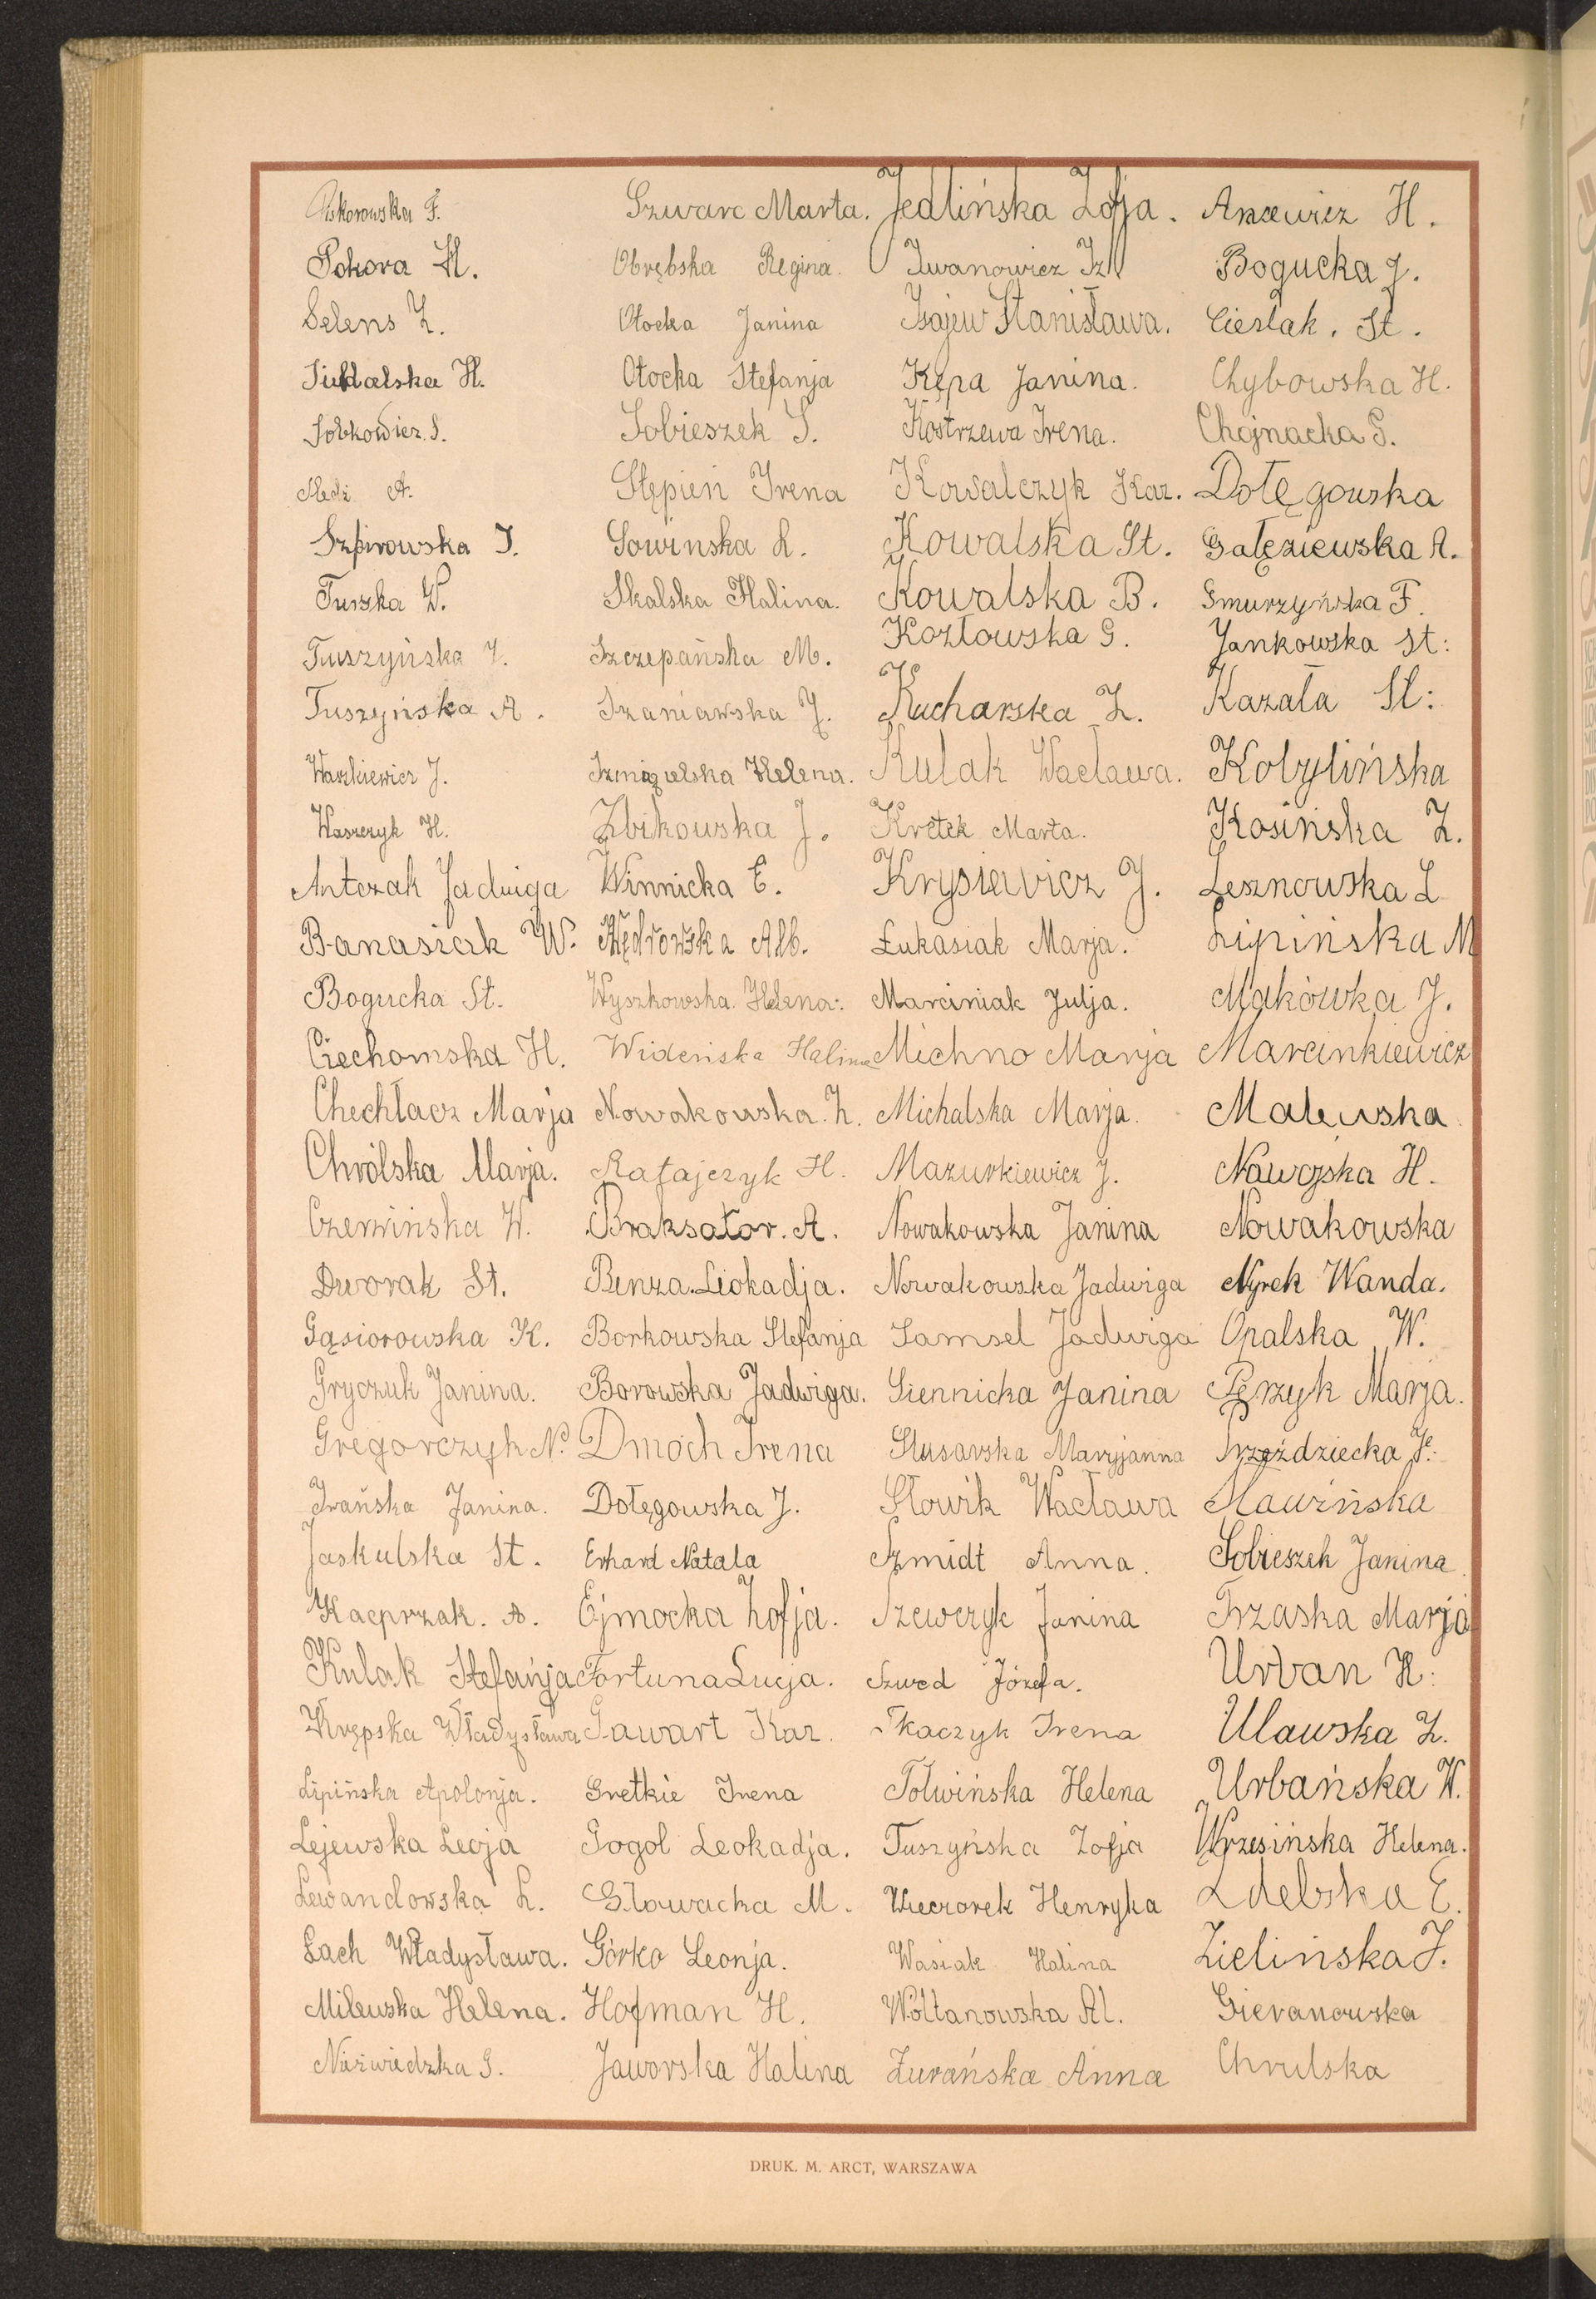 Piskorowska F.
Pokora H.
Selens Z.
Siudalska H.
Sobkowicz. S.
Śledź A.
Szpirowska J.
Tuszka W.
Tuszyńska Z.
Tuszyńska A.
Waszkiewicz J.
Waszczyk H.
Antczak Jadwiga
Banasiak W.
Bogucka St.
Ciechomska H.
Chechłacz Marja
Chrólska Marja.
Czerwińska W.
Dworak St.
Gąsiorowska K.
Gryczuk Janina.
Gregorczyk N.
Irańska Janina.
Jaskulska St.
Kacprzak. A.
Kulak Stefanja
Krępska Władysława
Lipińska Apolonja.
Lejewska Leoja
Lewandowska L.
Łach Władysława.
Milewska Helena.
Niźwiedzka G.
Szwarc Marta.
Obrębska Regina.
Otocka Janina
Otocka Stefanja
Sobieszek S.
Stępień Irena
Sowinska L.
Skalska Halina.
Szczepańska M.
Szaniawska J.
Szmigielska Helena.
Zbikowska J.
Winnicka E.
Wędrowska Alb.
Wyszkowska Helena.
Wideńska Halina
Nowakowska. Z.
Ratajczyk H.
Braksator. A.
Benza. Leokadja.
Borkowska Stefanja
Borowska Jadwiga.
Dmoch Irena
Dołęgowska J.
Erhard Natala
Ejmocka Zofja.
Fortuna Lucja.
Gawart Kaz.
Gretkie Irena
Gogol Leokadja.
Głowacka M.
Górko Leonja.
Hofman H.
Jaworska Halina
Jedlińska Zofja.
Iwanowicz Iz.
Isajew Stanisława.
Kępa Janina.
Kostrzewa Irena.
Kowalczyk Kaz.
Kowalska St.
Kowalska B.
Kozłowska G.
Kucharska Z.
Kulak Wacława.
Kretek Marta.
Krysiewicz J.
Łukasiak Marja.
Marciniak Julja.
Michno Marja
Michalska Marja.
Mazurkiewicz J.
Nowakowska Janina
Nowakowska Jadwiga
Samsel Jadwiga
Siennicka Janina
Slusarska Maryjanna
Słowik Wacława
Szmidt Anna.
Szewczyk Janina
Szwed Józefa.
Tkaczyk Irena
Tołwińska Helena
Tuszyńska Zofja
Wieczorek Henryka
Wasiak Halina
Woltanowska Al.
Żurańska Anna
Ancewicz H.
Bogucka J.
Cieslak. St.
Chybowska H.
Chojnacka S.
Dołęgowska
Gałęziewska A.
Gmurzyńska F.
Jankowska St:
Kazała St:
Kobylińska
Kosińska Z.
Lesznowska L
Lipińska M
Makówka J.
Marcinkiewicz
Malewska
Nawojska H.
Nowakowska
Nyrek Wanda.
Opalska W.
Pęrzyk Marja.
Przeździecka H.
Sławińska
Sobieszek Janina
Trzaska Marja
Urban H:
Ulawska Z.
Urbańska W.
Wrzesińska Helena.
Zdebska E.
Zielińska J.
Gieranowska
Chrulska
DRUK. M. ARCT, WARSZAWA